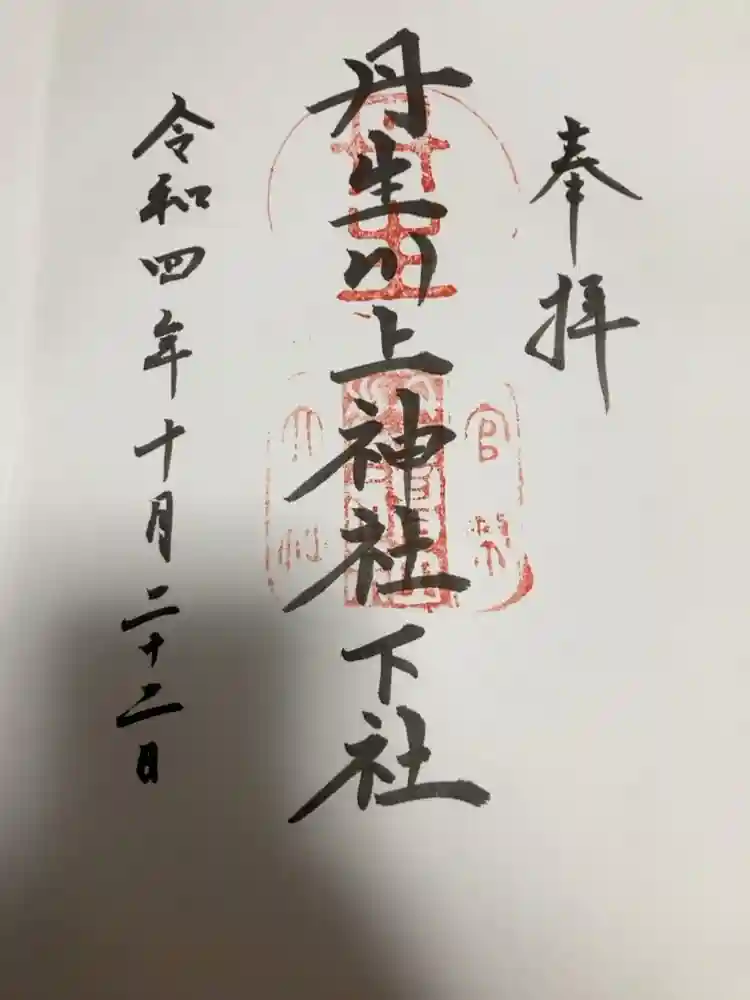 奉拝
丹生川上神社下社
令和四年十月二十二日